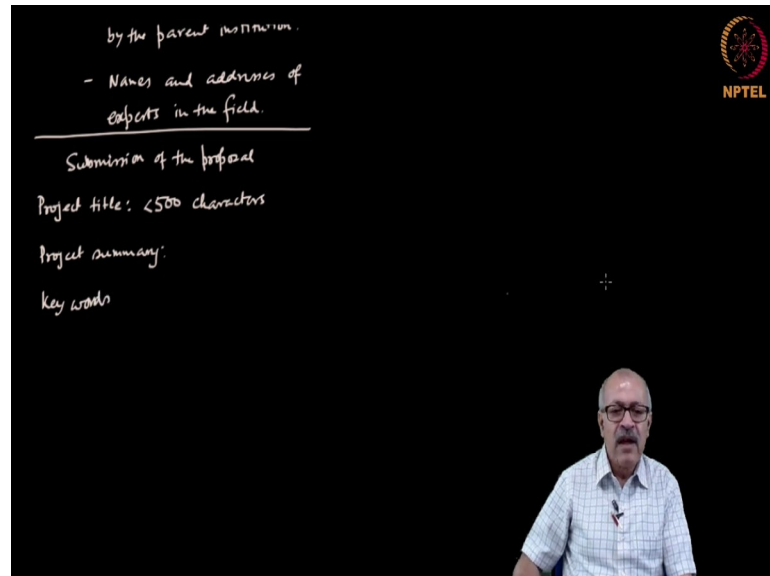 by the parent institution.
- Names and addresses of
experts in the field.
Submission of the proposal
Project title: <500 characters
Project summary:
Key words
NPTEL